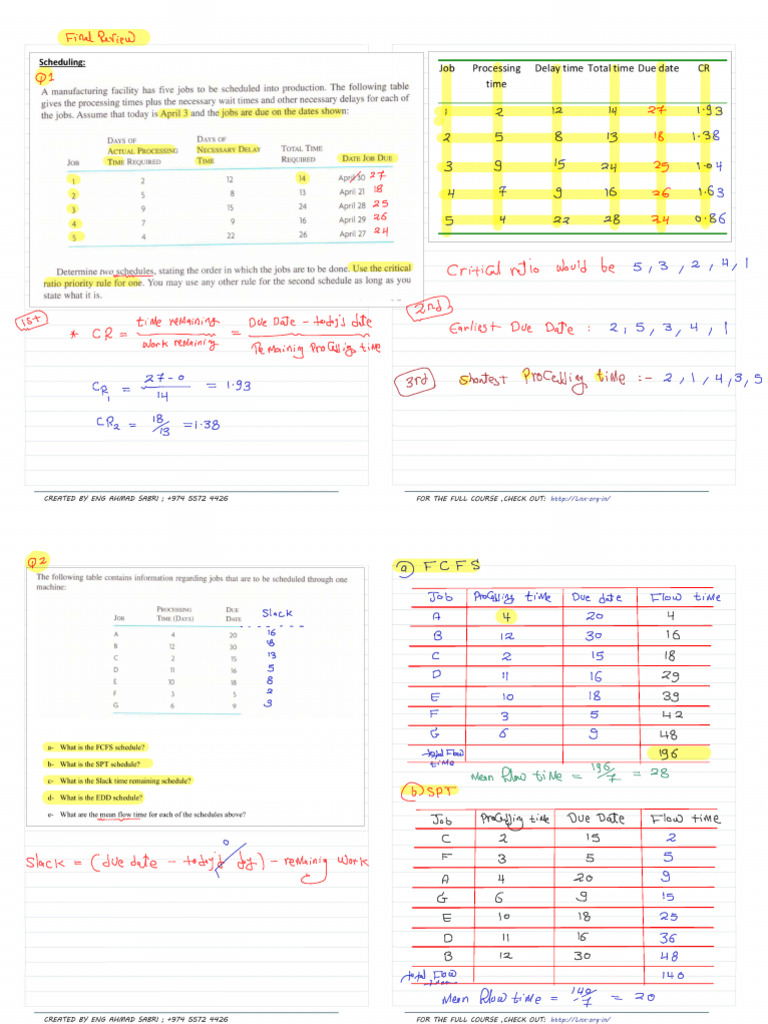 Final Review
Scheduling:
Q1
A manufacturing facility has five jobs to be scheduled into production. The following table
gives the processing times plus the necessary wait times and other necessary delays for each of
the jobs. Assume that today is April 3 and the jobs are due on the dates shown:
DAYS OF DAYS OF
ACTUAL PROCESSING NECESSARY DELAY TOTAL TIME
JOB TIME REQUIRED TIME REQUIRED DATE JOB DUE
1 2 12 14 April 30 27
2 5 8 13 April 21 18
3 9 15 24 April 28 25
4 7 9 16 April 29 26
5 4 22 26 April 27 24
Determine two schedules, stating the order in which the jobs are to be done. Use the critical
ratio priority rule for one. You may use any other rule for the second schedule as long as you
state what it is.
1st
* CR = time remaining / work remaining = Due Date - today's date / Remaining Processing time
CR1 = 27-0 / 14 = 1.93
CR2 = 18/13 = 1.38
CREATED BY ENG AHMAD SABRI ; +974 5572 4426
Job Processing time Delay time Total time Due date CR
1 2 12 14 27 1.93
2 5 8 13 18 1.38
3 9 15 24 25 1.04
4 7 9 16 26 1.63
5 4 22 28 24 0.86
Critical ratio would be 5, 3, 2, 4, 1
2nd
Earliest Due Date : 2, 5, 3, 4, 1
3rd Shortest Processing time :- 2, 1, 4, 3, 5
FOR THE FULL COURSE ,CHECK OUT: http://Lnx-org-in/
Q2
The following table contains information regarding jobs that are to be scheduled through one
machine:
PROCESSING DUE Slack
JOB TIME (DAYS) DATE
A 4 20 16
B 12 30 18
C 2 15 13
D 11 16 5
E 10 18 8
F 3 5 2
G 6 9 3
a- What is the FCFS schedule?
b- What is the SPT schedule?
c- What is the Slack time remaining schedule?
d- What is the EDD schedule?
e- What are the mean flow time for each of the schedules above?
0
Slack = (due date - today's day) - remaining work
CREATED BY ENG AHMAD SABRI ; +974 5572 4426
a) FCFS
Job Processing time Due date Flow time
A 4 20 4
B 12 30 16
C 2 15 18
D 11 16 29
E 10 18 39
F 3 5 42
G 6 9 48
total Flow time 196
Mean flow time = 196/7 = 28
b) SPT
Job Processing time Due Date Flow time
C 2 15 2
F 3 5 5
A 4 20 9
G 6 9 15
E 10 18 25
D 11 16 36
B 12 30 48
total Flow time 140
Mean flow time = 140/7 = 20
FOR THE FULL COURSE ,CHECK OUT: http://Lnx-org-in/